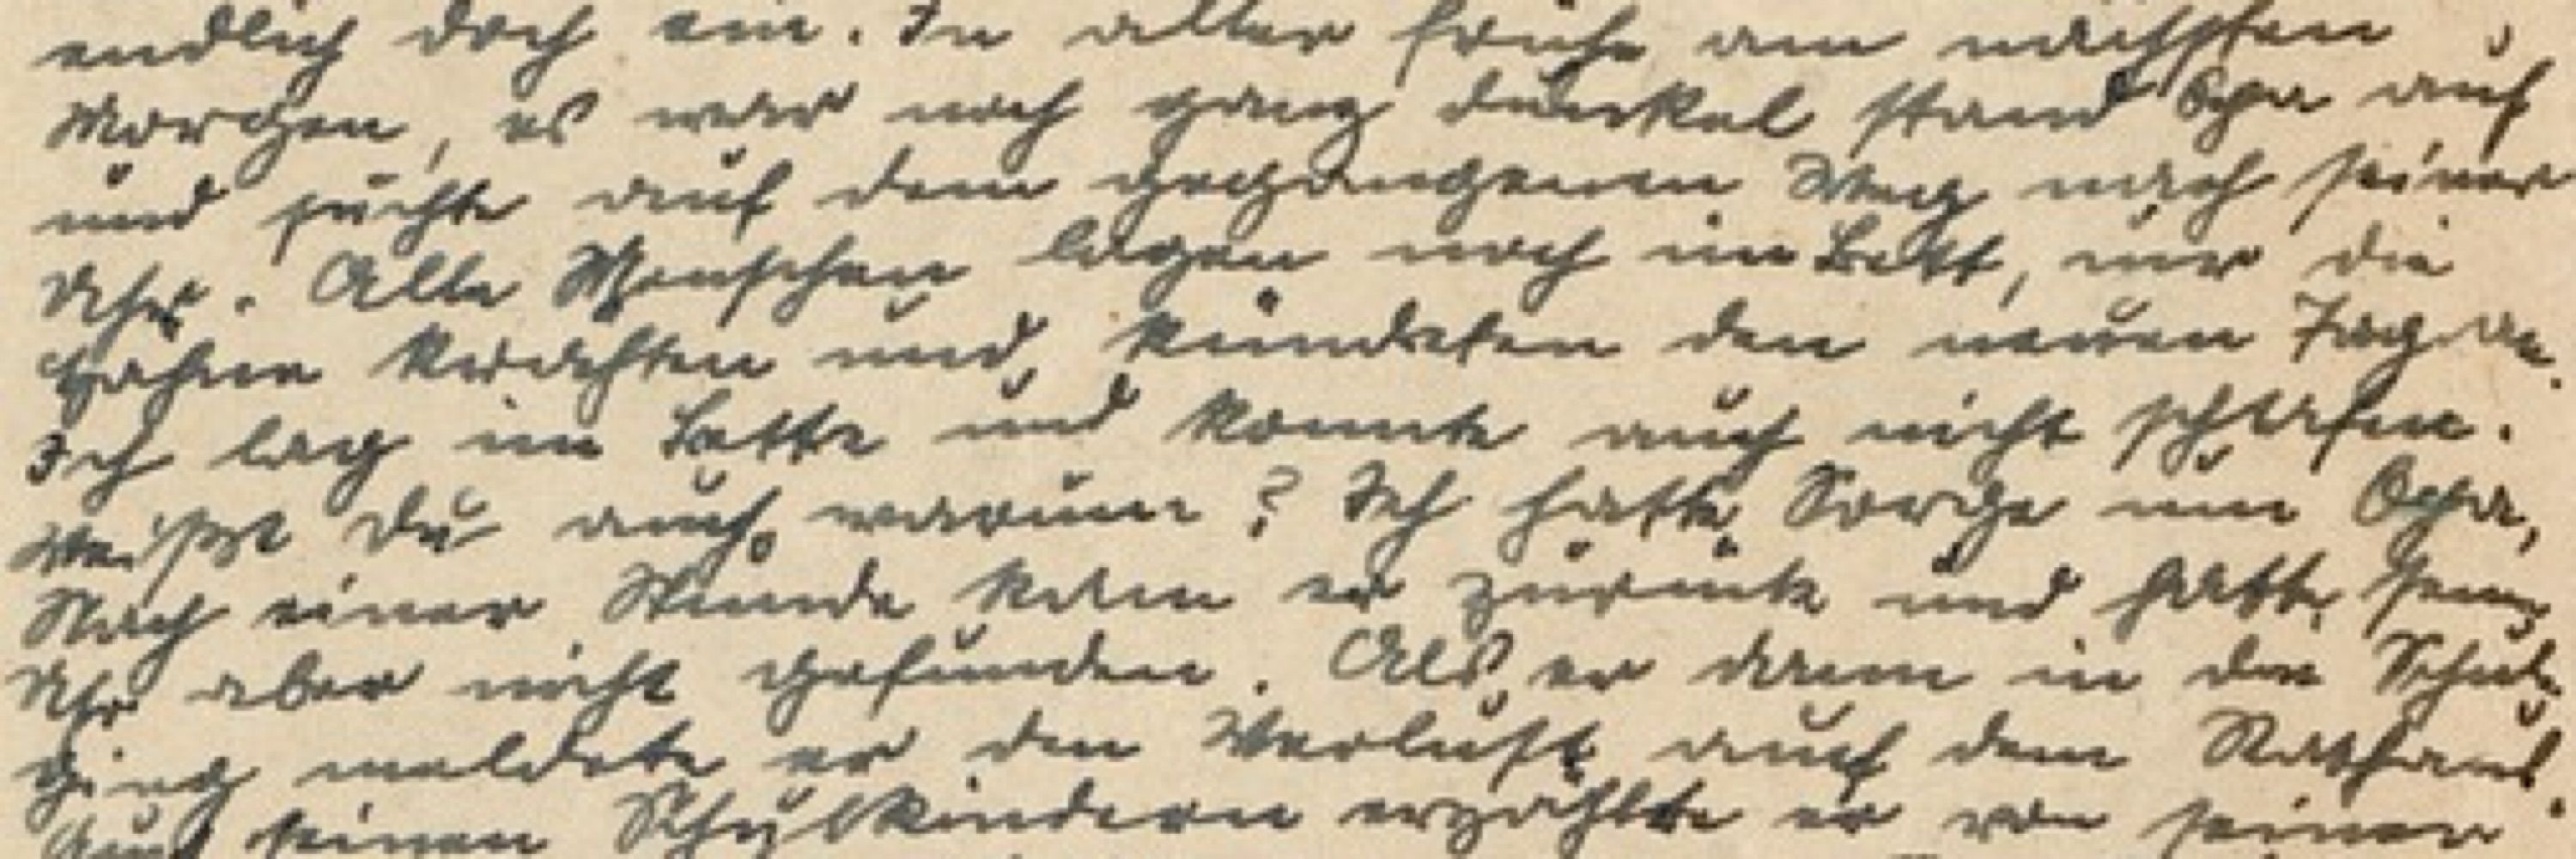 endlich doch ein. In aller Frühe am nächsten
Morgen, es war noch ganz dunkel stand Opa auf
und suchte auf dem gegangenen Weg nach seiner
Uhr. Alle Menschen lagen noch im Bett, nur die
Hähne krähten und kündeten den neuen Tag an.
Ich lag im Bette und konnte auch nicht schlafen.
Weißt Du auch warum? Ich hatte Sorge um Opa,
Nach einer Stunde kam er zurück und hatte seine
Uhr aber nicht gefunden. Als er dann in die Schule
ging meldete er den Verlust auf dem Rathaus.
Auch seinen Schulkindern erzählte er von seiner